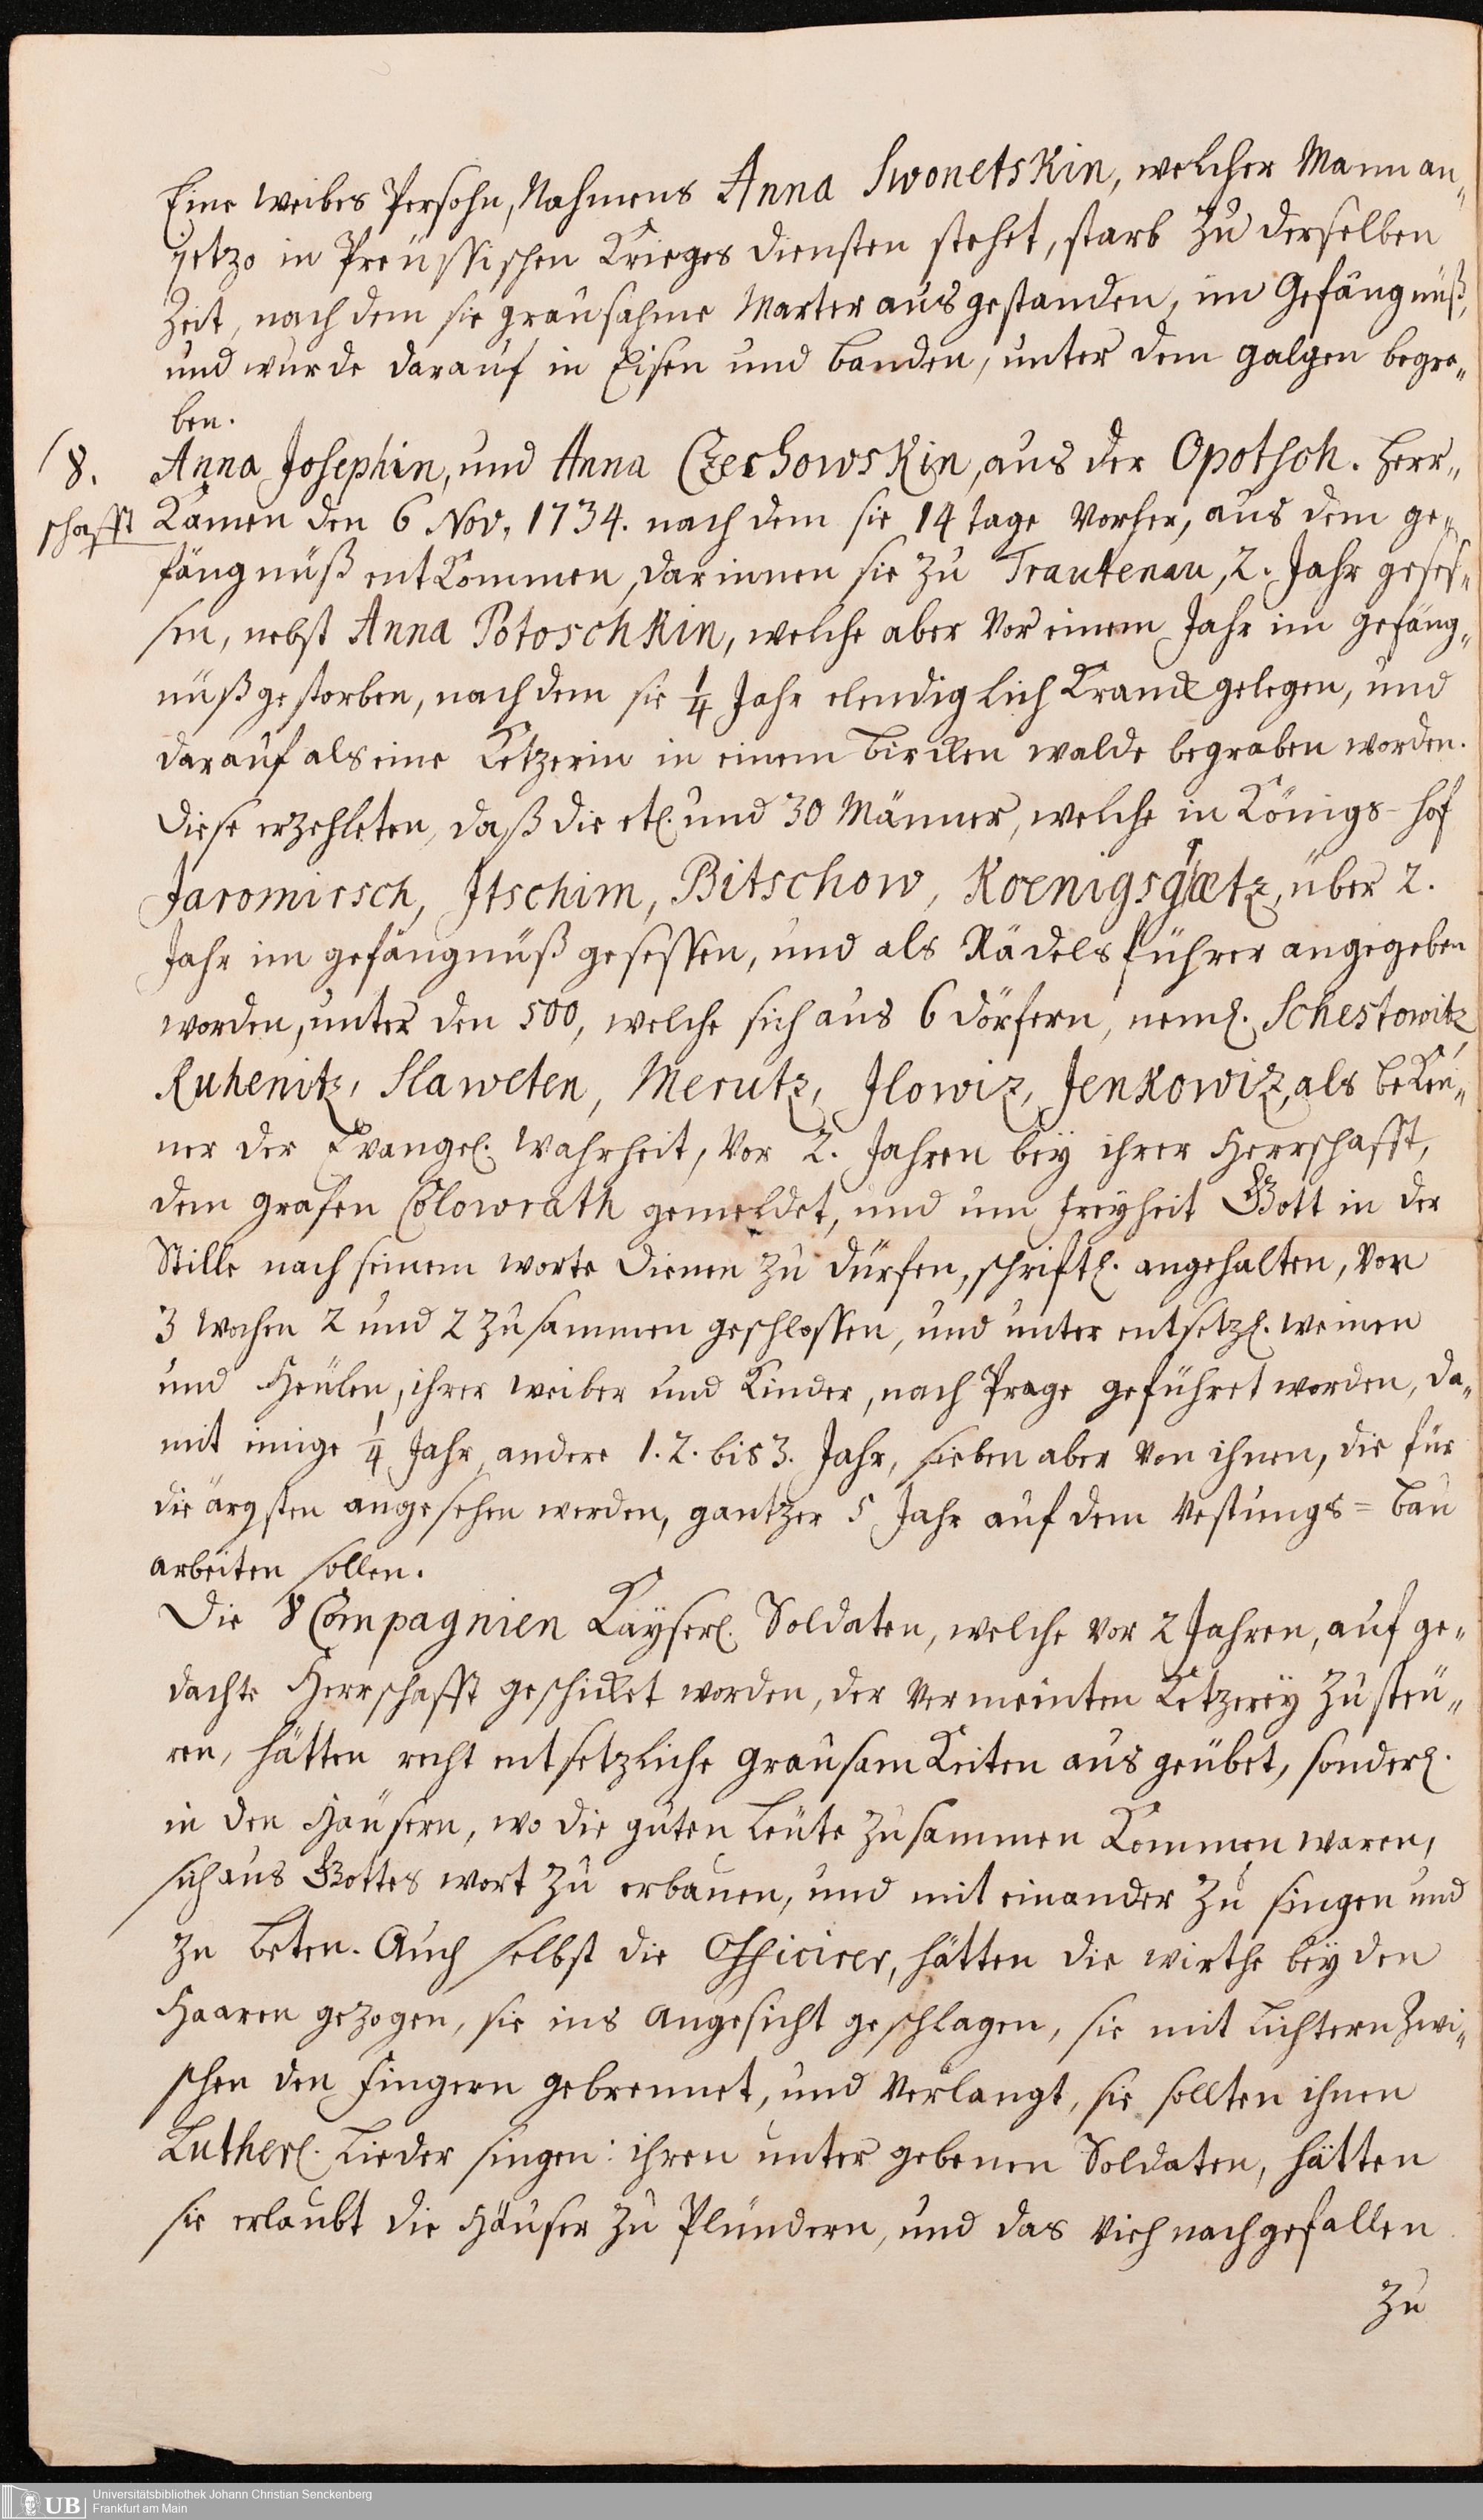 Eine Weibes Persohn, Nahmens Anna Swonetskin, welcher Mann an„
jetzo in Preüssischen Krieges diensten stehet, starb zu derselben
Zeit, nach dem sie grausahme Marter ausgestanden, im Gefängnüß,
und wurde darauf in Eisen und banden, unter dem galgen begra„
ben.
8. Anna Josephin, und Anna Czechowskin, aus der Opotsch. Herr„
schafft Kamen den 6 Nov. 1734. nach dem sie 14 tage vorher, aus dem ge„
fängnüß entkommen, darinnen sie zu Trautenau, 2. Jahr geses„
sen, nebst Anna Potoschkin, welche aber vor einem Jahr im gefäng„
nüß gestorben, nach dem sie 1/4 Jahr elendiglich Kranck gelegen, und
darauf als eine Ketzerin in einem birckenwalde begraben worden.
Diese erzehleten, daß die etl. und 30 Männer, welche in Königs-hof
Jaromirsch, Itschim, Bitschow, Koenigsgraetz, über 2.
Jahr im gefängnüß gesessen, und als Rädelsführer angegeben
worden, unter den 500, welche sich aus 6 dörfern, neml. Schestowitz
Ruhenitz, Slaweten, Merutz, Ilowiz, Jenkowiz, als beken„
ner der Evangel. Wahrheit, vor 2. Jahren bey ihrer Herrschafft,
dem grafen Colowrath gemeldet, und um freyheit Gott in der
Stille nach seinem worte dienen zu dürfen, schriftl. angehalten, vor
3 Wochen 2 und 2 zusammen geschlossen, und unter entsetzl. weinen
und Heülen, ihrer weiber und Kinder, nach Prage geführet worden, da„
mit einige 1/4 Jahr, andere 1. 2. bis 3. Jahr, sieben aber von ihnen, die für
die ärgsten angesehen werden, gantzer 5 Jahr auf dem Vestungs=bau
arbeiten sollen.
Die 8 Compagnien Kayserl. Soldaten, welche vor 2 Jahren, auf ge„
dachte Herrschafft geschicket worden, der vermeinten Ketzerey zu steü„
ren, hätten recht entsetzliche grausamkeiten ausgeübet, sonderl.
in den Häusern, wo die guten Leüte zusammen Kommen waren,
sich aus Gottes wort zu erbauen, und mit einander zu singen und
zu beten. Auch selbst die Officirer, hätten die wirthe bey den
Haaren gezogen, sie ins angesicht geschlagen, sie mit lichtern zwi„
schen den fingern gebrennet, und verlangt, sie sollten ihnen
Lutherl. Lieder singen: ihren unter gebenen Soldaten, hätten
sie erlaubt die Häuser zu Plündern, und das Vieh nach gefallen
zu
UB Universitätsbibliothek Johann Christian Senckenberg
Frankfurt am Main